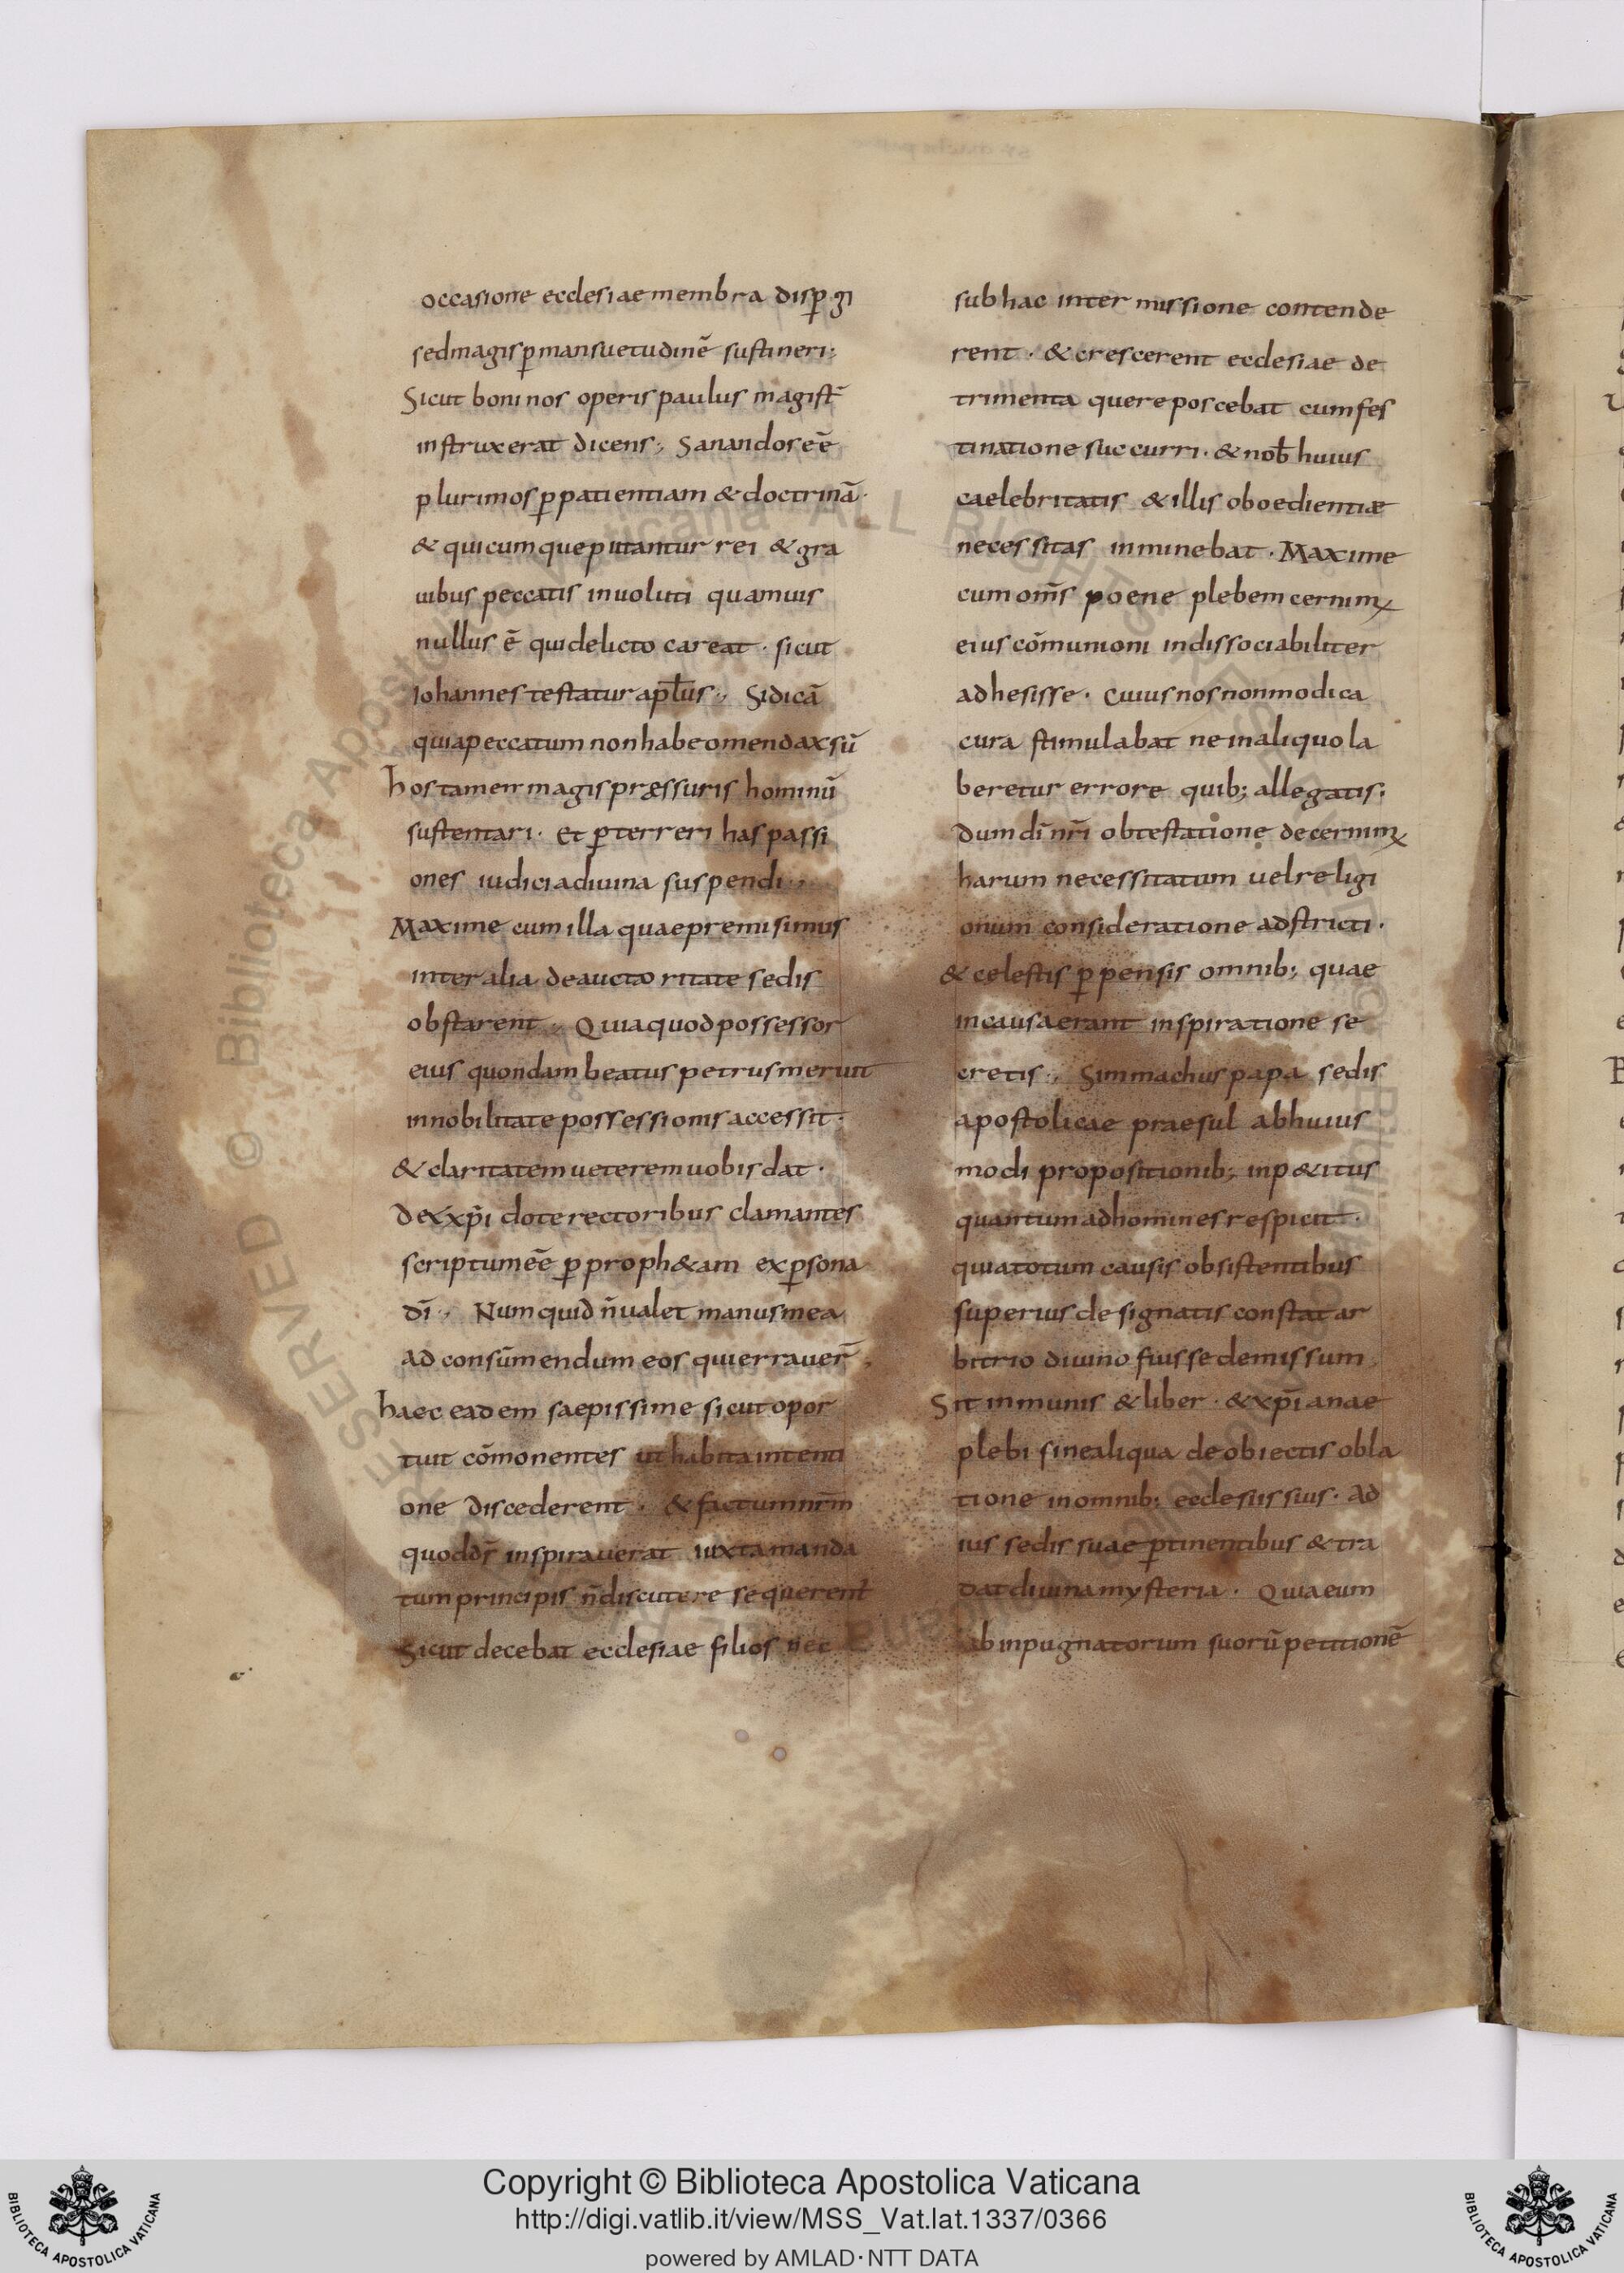 occasione ecclesiae membra disꝑgi
sed magis ꝑ mansuetudinē sustineri;
Sicut boni nos operis paulus magist̄
instruxerat dicens; Sanandos eē
plurimos ꝑ patientiam & doctrinā·
& quicumque putantur rei & gra
uibus peccatis inuoluti quamuis
nullus ē qui delicto careat · sicut
Iohannes testatur apłus; Si dicā
quia peccatum non habeo mendax sū
hos tamen magis pręssuris hominū
sustentari · Et ꝑterreri has passi
ones iudicia diuina suspendi;
Maxime cum illa quae premisimus
inter alia de auctoritate sedis
obstarent; Quia quod possessor
eius quondam beatus petrus meruit
in nobilitate possessionis accessit ·
& claritatem ueterem uobis dat ·
de xp̄i dote rectoribus clamantes
scriptum eē ꝑ proph&am ex ꝑsona
dī; Numquid n̄ ualet manus mea
ad consūmendum eos qui errauer̄;
haec eadem saepissime sicut opor
tuit cōmonentes ut habita intenti
one discederent · & factum nr̄m
quod dr̄ inspirauerat iuxta manda
tum principis n̄ discutere se querent
Sicut decebat ecclesiae filios nec
sub hac intermissione contende
rent · & crescerent ecclesiae de
trimenta quere poscebat cum fes
tinatione succurri · & nob̄ huius
caelebritatis & illis oboedientiæ
necessitas inminebat · Maxime
cum om̄s poene plebem cernimꝰ
eius cōmunioni indissociabiliter
adhesisse · Cuius nos non modica
cura stimulabat ne in aliquo la
beretur errore quib; allegatis ·
dum dī nr̄i obtestatione decernimꝰ
harum necessitatum uel religi
onum consideratione adstricti ·
& celestis ꝑpensis omnib; quae
in causa erant inspiratione se
cretis; Simmachus papa sedis
apostolicae praesul ab huius
modi propositionib; inp&itus
quantum ad homines respicit ·
quia totum causis obsistentibus
superius designatis constat ar
bitrio diuino fuisse demissum
Sit inmunis & liber · & xp̄ianae
plebi sine aliqua de obiectis obla
tione in omnib; ecclesiis suis · ad
ius sedis suae ꝑtinentibus & tra
dat diuina mysteria · Quia eum
ab inpugnatorum suorū petitionē
Copyright © Biblioteca Apostolica Vaticana
http://digi.vatlib.it/view/MSS_Vat.lat.1337/0366
powered by AMLAD·NTT DATA
BIBLIOTECA APOSTOLICA VATICANA
BIBLIOTECA APOSTOLICA VATICANA